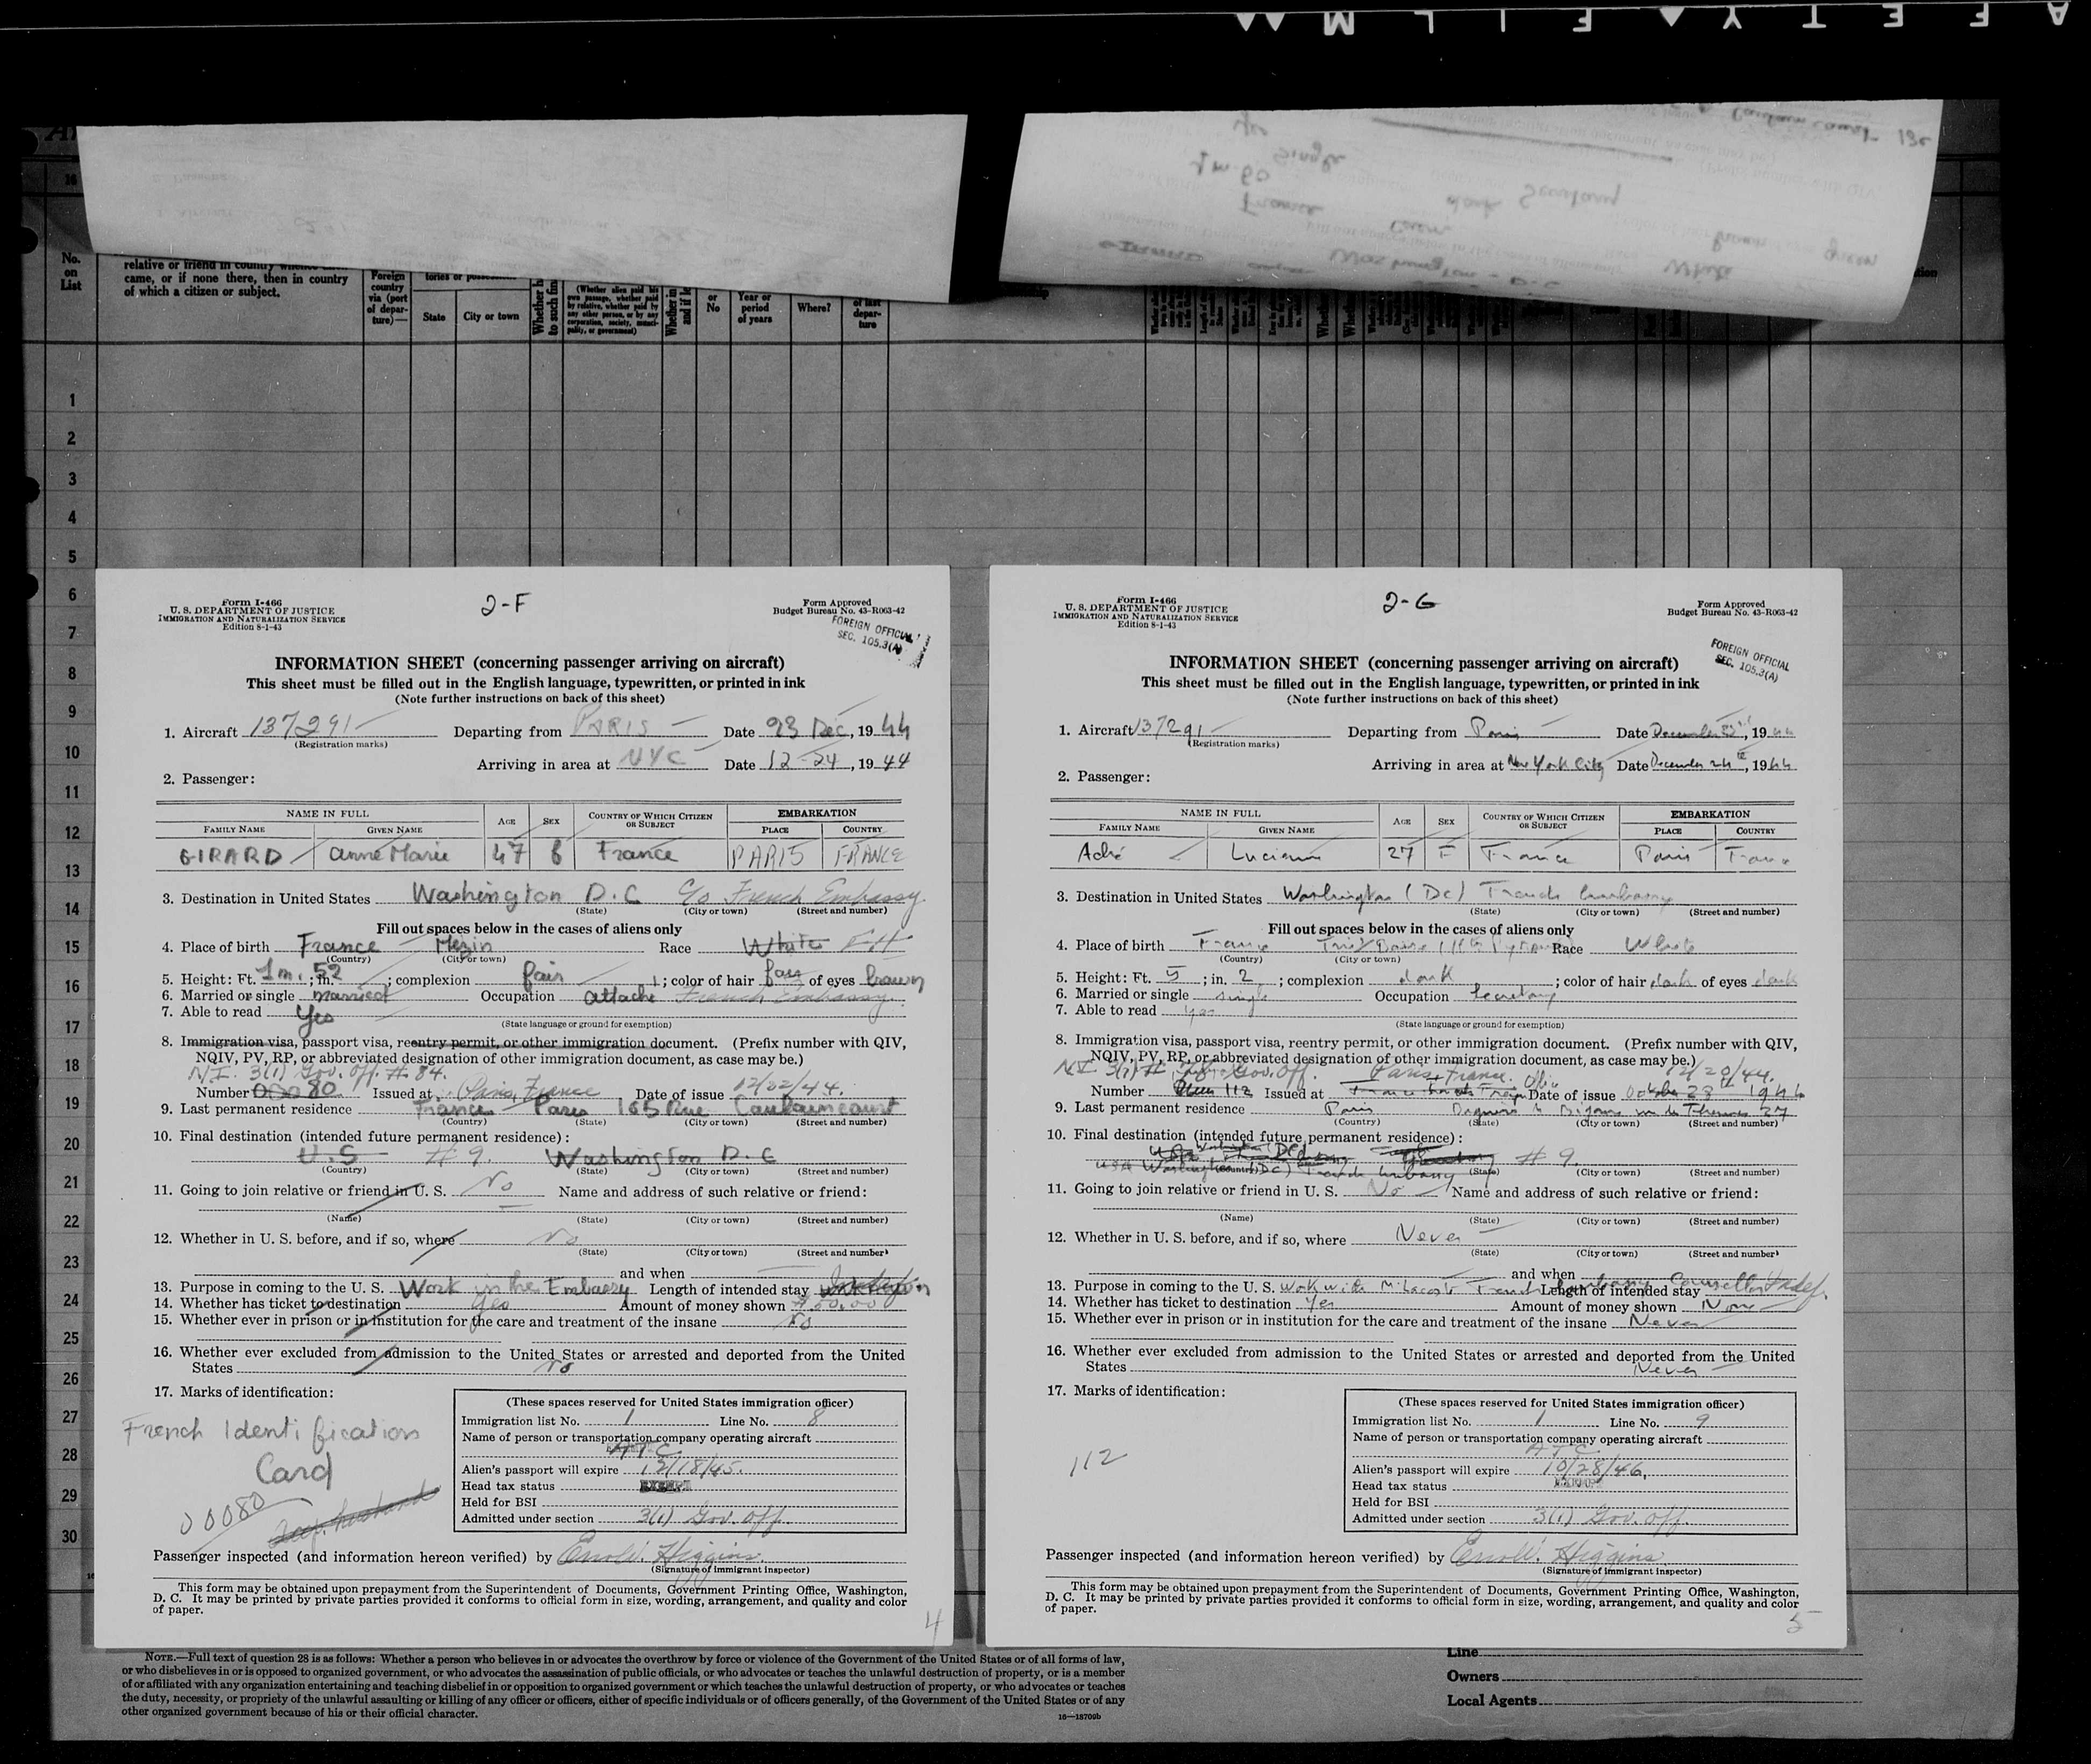 SAFETY FILM
No. on List
relative or friend in country whence
came, or if none there, then in country
of which a citizen or subject.
Foreign country via (port of departure)—
State
City or town
(Whether alien paid his own passage, whether paid by relative, whether paid by any other person, or by any corporation, society, municipality, or government)
or No
Year or period of years
Where?
of last departure
1
2
3
4
5
6
7
8
9
10
11
12
13
14
15
16
17
18
19
20
21
22
23
24
25
26
27
28
29
30
Form I-466
U. S. DEPARTMENT OF JUSTICE
IMMIGRATION AND NATURALIZATION SERVICE
Edition 8-1-43
2-F
Form Approved
Budget Bureau No. 43-R063-42
FOREIGN OFFICIAL
SEC. 105.3(A)
INFORMATION SHEET (concerning passenger arriving on aircraft)
This sheet must be filled out in the English language, typewritten, or printed in ink
(Note further instructions on back of this sheet)
1. Aircraft 137291 Departing from PARIS Date 23 Dec, 1944
(Registration marks)
Arriving in area at NYC Date 12-24, 1944
2. Passenger:
NAME IN FULL AGE SEX COUNTRY OF WHICH CITIZEN OR SUBJECT EMBARKATION
FAMILY NAME GIVEN NAME PLACE COUNTRY
GIRARD Anne Marie 47 f France PARIS FRANCE
3. Destination in United States Washington D.C c/o French Embassy
(State) (City or town) (Street and number)
Fill out spaces below in the cases of aliens only
4. Place of birth France Mezin Race White FH
(Country) (City or town)
5. Height: Ft. 1m. ; in. 52 ; complexion fair ; color of hair fair of eyes brown
6. Married or single married Occupation attaché French Embassy
7. Able to read Yes
(State language or ground for exemption)
8. Immigration visa, passport visa, reentry permit, or other immigration document. (Prefix number with QIV,
NQIV, PV, RP, or abbreviated designation of other immigration document, as case may be.)
N.I. 3(1) Gov. Off. # 84.
Number 00080 Issued at Paris, France Date of issue 12/22/44.
9. Last permanent residence France Paris 165 Rue Caulaincourt
(Country) (State) (City or town) (Street and number)
10. Final destination (intended future permanent residence):
U.S # 9. Washington D.C
(Country) (State) (City or town) (Street and number)
11. Going to join relative or friend in U. S. No Name and address of such relative or friend:
(Name) (State) (City or town) (Street and number)
12. Whether in U. S. before, and if so, where No
(State) (City or town) (Street and number)
and when
13. Purpose in coming to the U. S. Work in the Embassy Length of intended stay
14. Whether has ticket to destination Yes Amount of money shown
15. Whether ever in prison or in institution for the care and treatment of the insane No
16. Whether ever excluded from admission to the United States or arrested and deported from the United
States No
17. Marks of identification:
French Identification
Card
00080
(These spaces reserved for United States immigration officer)
Immigration list No. 1 Line No. 8
Name of person or transportation company operating aircraft
A.T.C.
Alien's passport will expire 12/18/45.
Head tax status EXEMPT
Held for BSI
Admitted under section 3(1) Gov. Off.
Passenger inspected (and information hereon verified) by Errol E. Higgins.
(Signature of immigrant inspector)
This form may be obtained upon prepayment from the Superintendent of Documents, Government Printing Office, Washington,
D. C. It may be printed by private parties provided it conforms to official form in size, wording, arrangement, and quality and color
of paper.
4
Form I-466
U. S. DEPARTMENT OF JUSTICE
IMMIGRATION AND NATURALIZATION SERVICE
Edition 8-1-43
2-G
Form Approved
Budget Bureau No. 43-R063-42
FOREIGN OFFICIAL
SEC. 105.3(A)
INFORMATION SHEET (concerning passenger arriving on aircraft)
This sheet must be filled out in the English language, typewritten, or printed in ink
(Note further instructions on back of this sheet)
1. Aircraft 137291 Departing from Paris Date December, 1944
(Registration marks)
Arriving in area at New York City Date December 24th, 1944
2. Passenger:
NAME IN FULL AGE SEX COUNTRY OF WHICH CITIZEN OR SUBJECT EMBARKATION
FAMILY NAME GIVEN NAME PLACE COUNTRY
Adré Lucienne 27 F France Paris France
3. Destination in United States Washington (DC) French Embassy
(State) (City or town) (Street and number)
Fill out spaces below in the cases of aliens only
4. Place of birth France Race White
(Country) (City or town)
5. Height: Ft. 5 ; in. 2 ; complexion dark ; color of hair dark of eyes dark
6. Married or single single Occupation Secretary
7. Able to read yes
(State language or ground for exemption)
8. Immigration visa, passport visa, reentry permit, or other immigration document. (Prefix number with QIV,
NQIV, PV, RP, or abbreviated designation of other immigration document, as case may be.)
N.I. 3(1) # Gov. Off. Paris, France. 12/20/44.
Number 112 Issued at Date of issue October 28th 1944
9. Last permanent residence Paris rue des Thermes 27
(Country) (State) (City or town) (Street and number)
10. Final destination (intended future permanent residence):
# 9.
USA Washington (DC) French Embassy
(Country) (State) (City or town) (Street and number)
11. Going to join relative or friend in U. S. No Name and address of such relative or friend:
(Name) (State) (City or town) (Street and number)
12. Whether in U. S. before, and if so, where Never
(State) (City or town) (Street and number)
and when
13. Purpose in coming to the U. S. Work with M. Lacoste French Embassy Counsellor Length of intended stay Indef.
14. Whether has ticket to destination Yes Amount of money shown None
15. Whether ever in prison or in institution for the care and treatment of the insane Never
16. Whether ever excluded from admission to the United States or arrested and deported from the United
States Never
17. Marks of identification:
112
(These spaces reserved for United States immigration officer)
Immigration list No. 1 Line No. 9
Name of person or transportation company operating aircraft
A.T.C.
Alien's passport will expire 10/28/46.
Head tax status EXEMPT
Held for BSI
Admitted under section 3(1) Gov. Off.
Passenger inspected (and information hereon verified) by Errol E. Higgins.
(Signature of immigrant inspector)
This form may be obtained upon prepayment from the Superintendent of Documents, Government Printing Office, Washington,
D. C. It may be printed by private parties provided it conforms to official form in size, wording, arrangement, and quality and color
of paper.
5
NOTE.—Full text of question 28 is as follows: Whether a person who believes in or advocates the overthrow by force or violence of the Government of the United States or of all forms of law,
or who disbelieves in or is opposed to organized government, or who advocates the assassination of public officials, or who advocates or teaches the unlawful destruction of property, or is a member
of or affiliated with any organization entertaining and teaching disbelief in or opposition to organized government or which teaches the unlawful destruction of property, or who advocates or teaches
the duty, necessity, or propriety of the unlawful assaulting or killing of any officer or officers, either of specific individuals or of officers generally, of the Government of the United States or of any
other organized government because of his or their official character.
16—18709b
Line
Owners
Local Agents